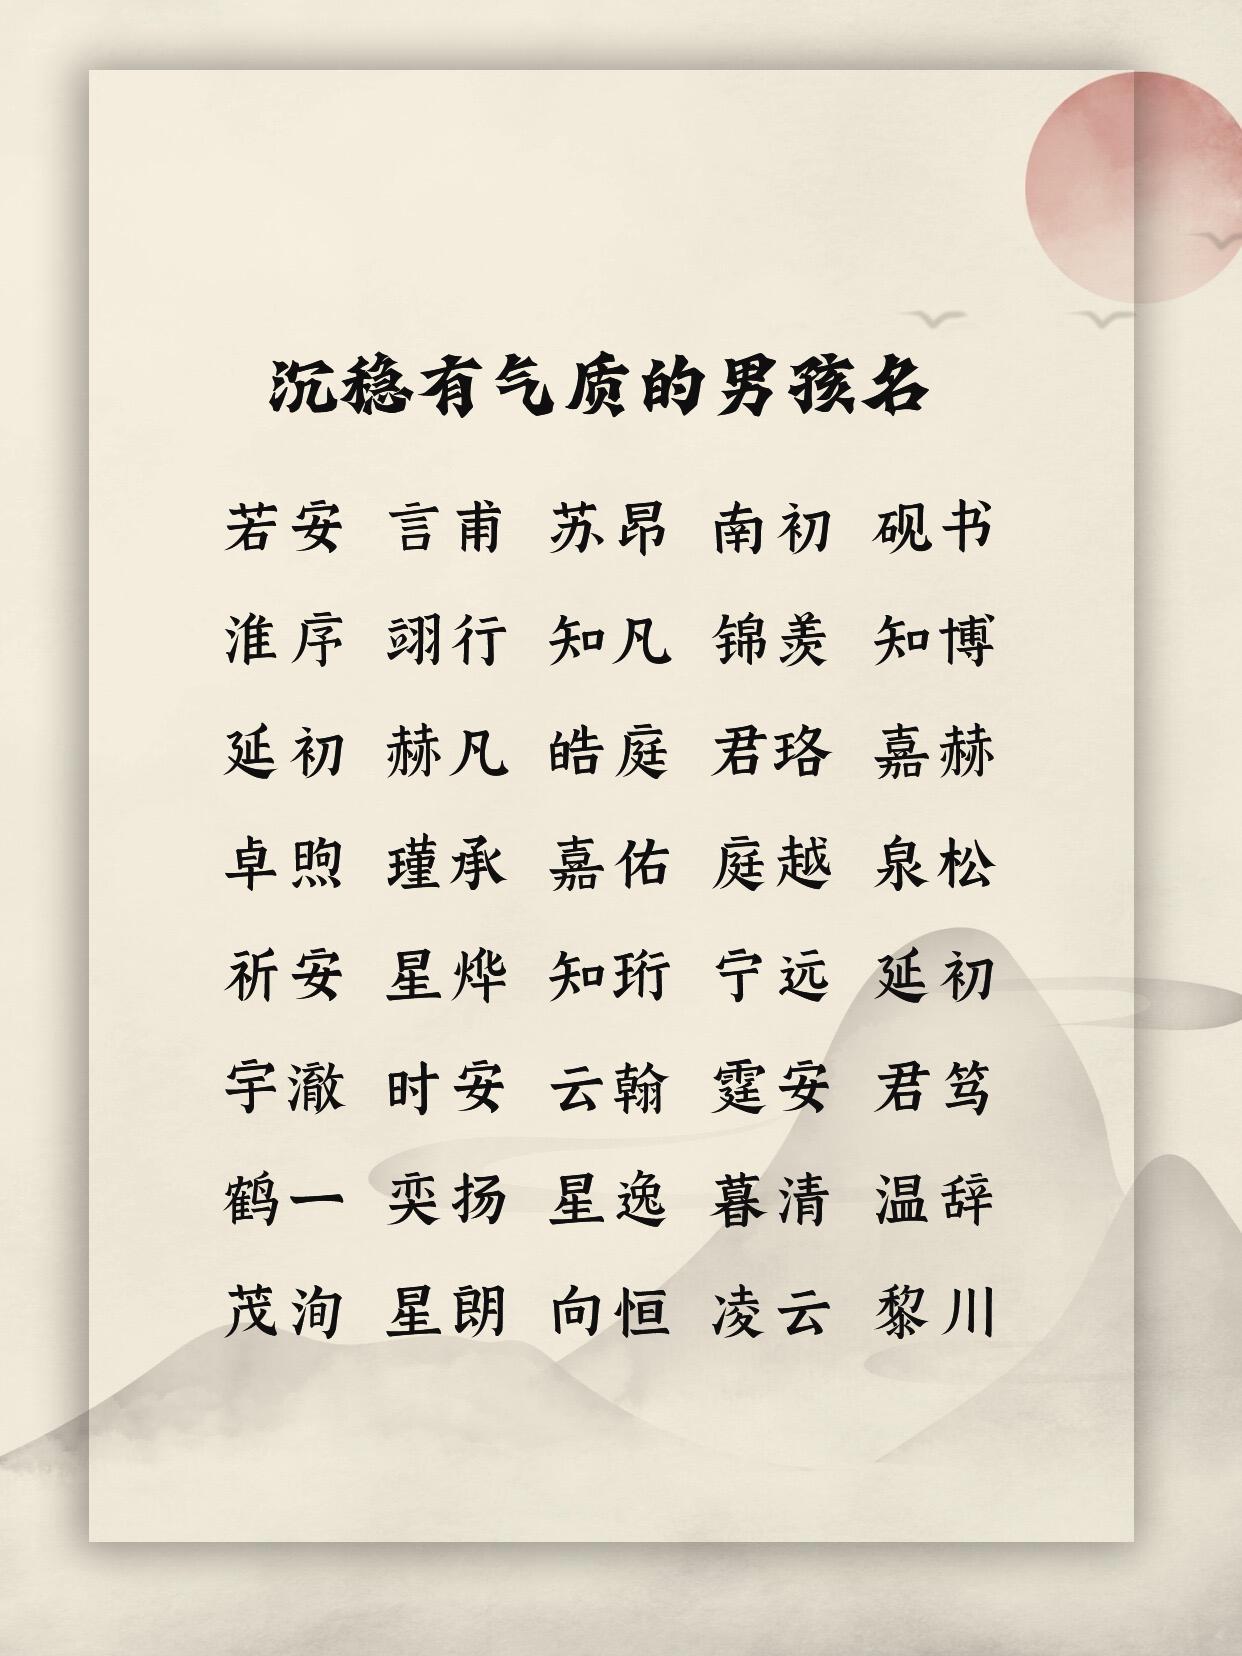 沉稳有气质的男孩名
若安 言甫 苏昂 南初 砚书
淮序 翊行 知凡 锦羡 知博
延初 赫凡 皓庭 君珞 嘉赫
卓煦 瑾承 嘉佑 庭越 泉松
祈安 星烨 知珩 宁远 延初
宇澈 时安 云翰 霆安 君笃
鹤一 奕扬 星逸 暮清 温辞
茂洵 星朗 向恒 凌云 黎川